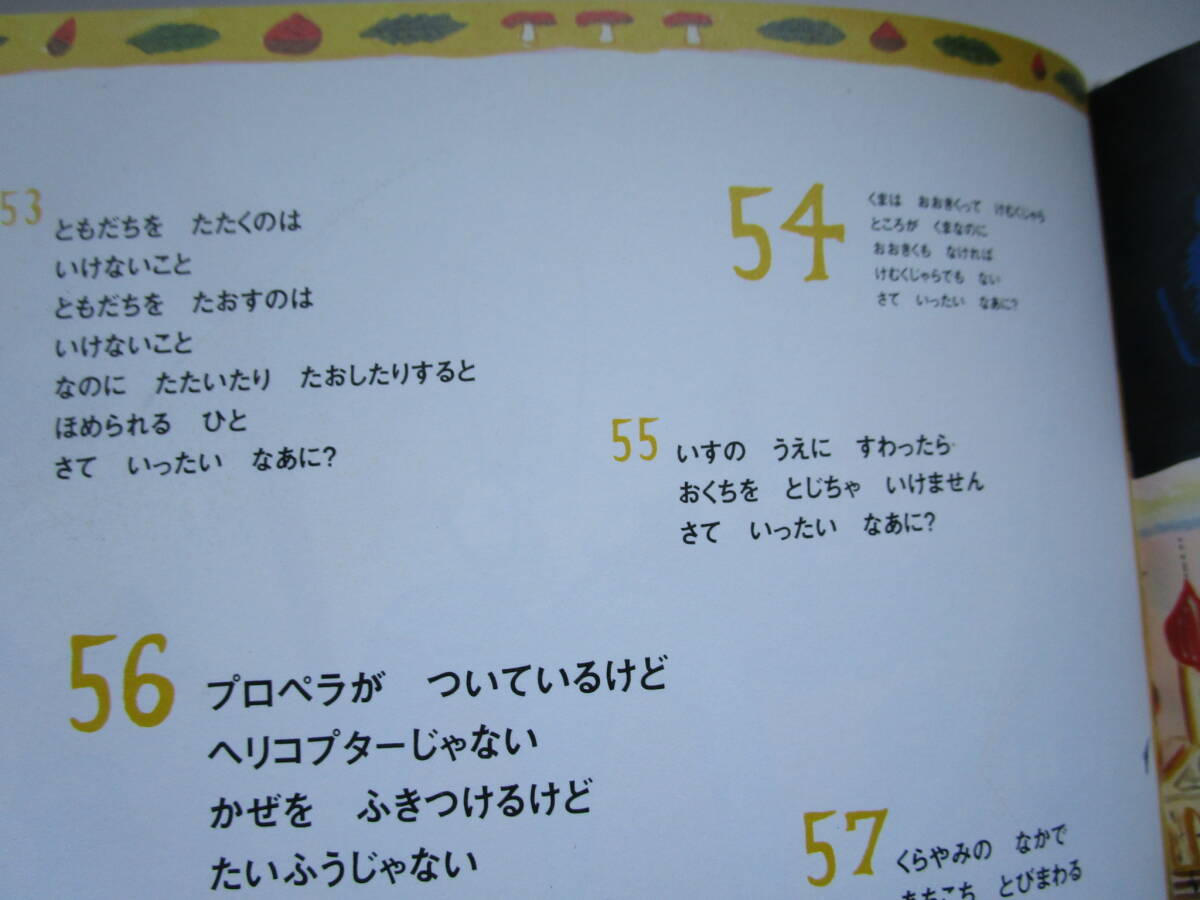 53
ともだちを　たたくのは
いけないこと
ともだちを　たおすのは
いけないこと
なのに　たたいたり　たおしたりすると
ほめられる　ひと
さて　いったい　なあに?
54
くまは　おおきくって　けむくじゃら
ところが　くまなのに
おおきくも　なければ
けむくじゃらでも　ない
さて　いったい　なあに?
55
いすの　うえに　すわったら
おくちを　とじちゃ　いけません
さて　いったい　なあに?
56
プロペラが　ついているけど
ヘリコプターじゃない
かぜを　ふきつけるけど
たいふうじゃない
57
くらやみの　なかで
あちこち　とびまわる